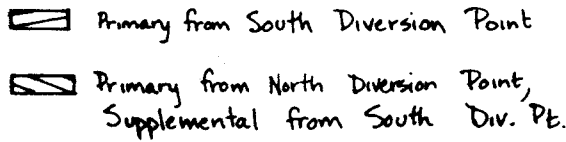 Primary from South Diversion Point
Primary from North Diversion Point,
Supplemental from South Div. Pt.